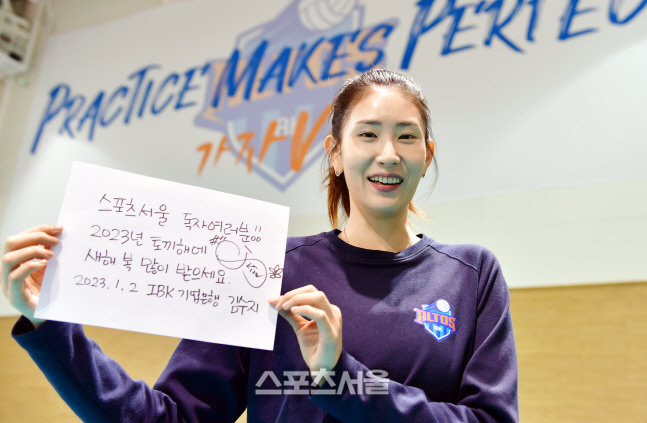 PRACTICE MAKES PERFEC
가자 V
스포츠서울 독자여러분!!
2023년 토끼해에
새해 복 많이 받으세요.
2023.1.2 IBK 기업은행 김수지
ALTOS
스포츠서울